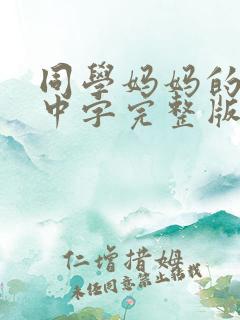 同學妈妈的
中字完整版
仁增措姆
未经同意禁止转载